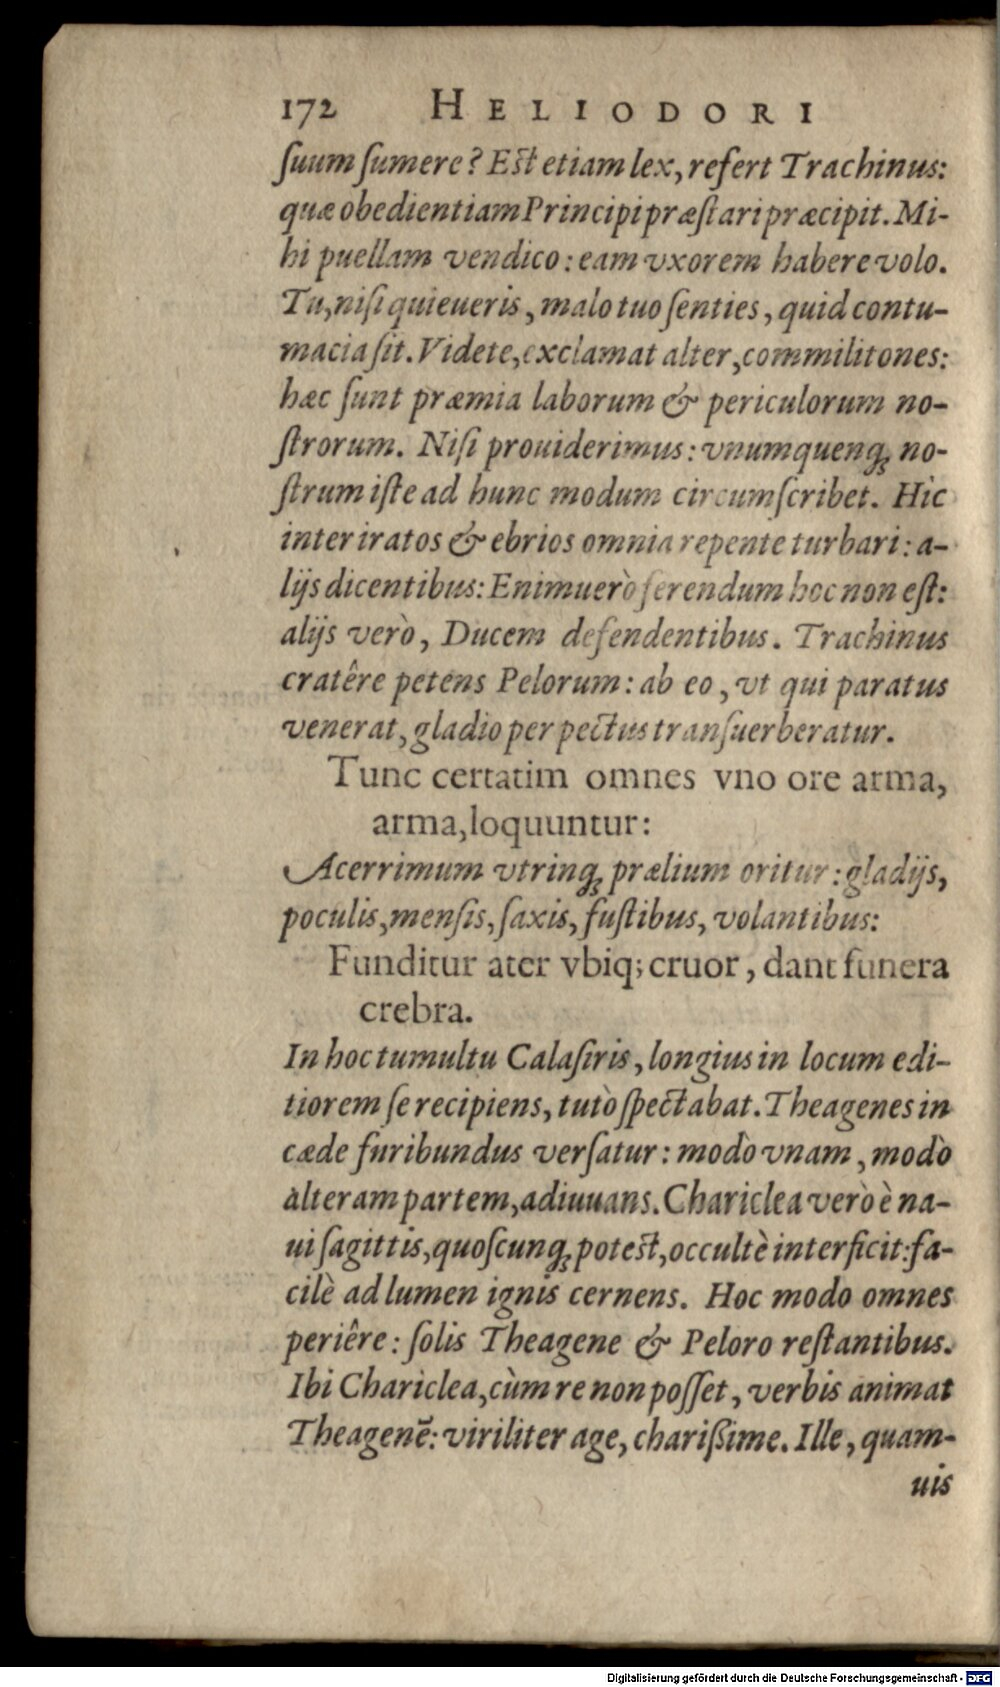 172 HELIODORI
ſuum ſumere? Est etiam lex, refert Trachinus:
quæ obedientiam Principi præſtari præcipit. Mi-
hi puellam vendico: eam vxorem habere volo.
Tu, niſi quieueris, malo tuo ſenties, quid contu-
macia ſit. Videte, exclamat alter, commilitones:
hæc ſunt præmia laborum & periculorum no-
ſtrorum. Niſi prouiderimus: vnumquenq; no-
ſtrum iſte ad hunc modum circumſcribet. Hìc
inter iratos & ebrios omnia repente turbari: a-
lijs dicentibus: Enimuerò ferendum hoc non eſt:
alijs verò, Ducem defendentibus. Trachinus
cratêre petens Pelorum: ab eo, vt qui paratus
venerat, gladio per pectus tranſuerberatur.
Tunc certatim omnes vno ore arma,
arma, loquuntur:
Acerrimum vtrinq; prælium oritur: gladijs,
poculis, menſis, ſaxis, fuſtibus, volantibus:
Funditur ater vbiq; cruor, dant funera
crebra.
In hoc tumultu Calaſiris, longius in locum edi-
tiorem ſe recipiens, tutò ſpectabat. Theagenes in
cæde furibundus verſatur: modò vnam, modò
alteram partem, adiuuans. Chariclea verò è na-
ui ſagittis, quoſcunq; potest, occultè interficit: fa-
cilè ad lumen ignis cernens. Hoc modo omnes
periêre: ſolis Theagene & Peloro reſtantibus.
Ibi Chariclea, cùm re non poſſet, verbis animat
Theagenē: viriliter age, charißime. Ille, quam-
uis
Digitalisierung gefördert durch die Deutsche Forschungsgemeinschaft - DFG